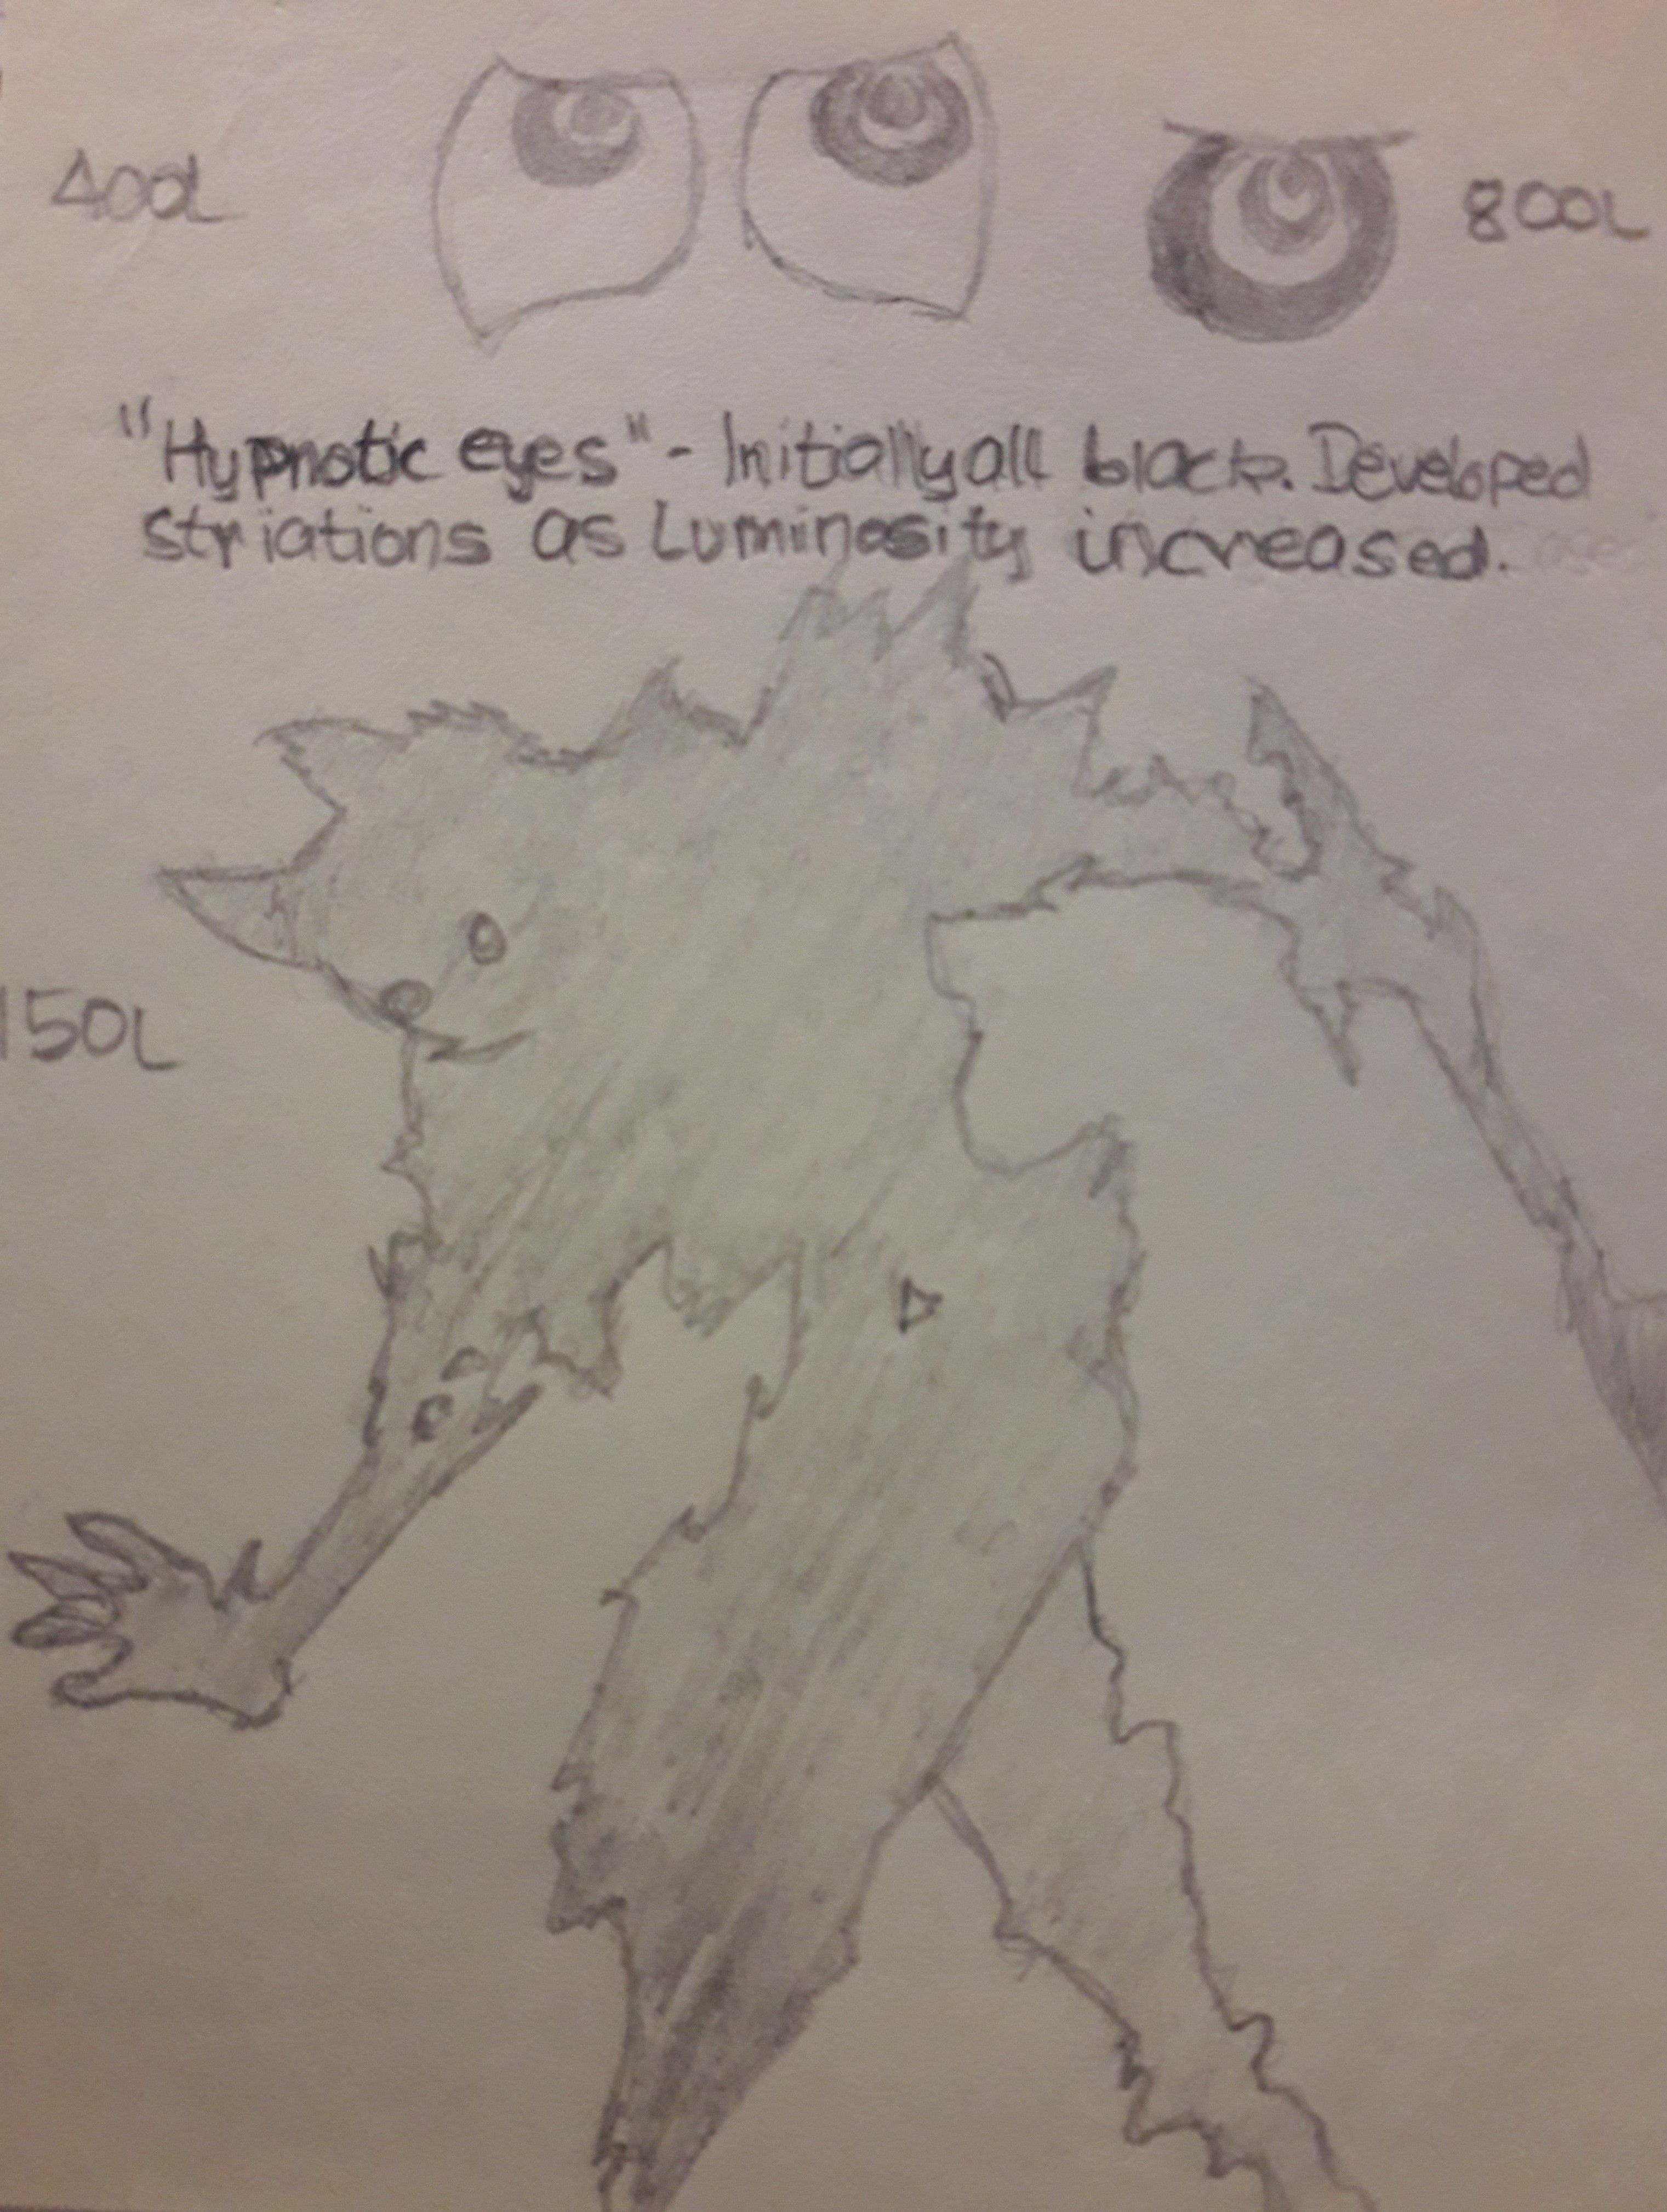 400L
800L
"Hypnotic eyes" - Initially all black. Developed
striations as Luminosity increased.
150L